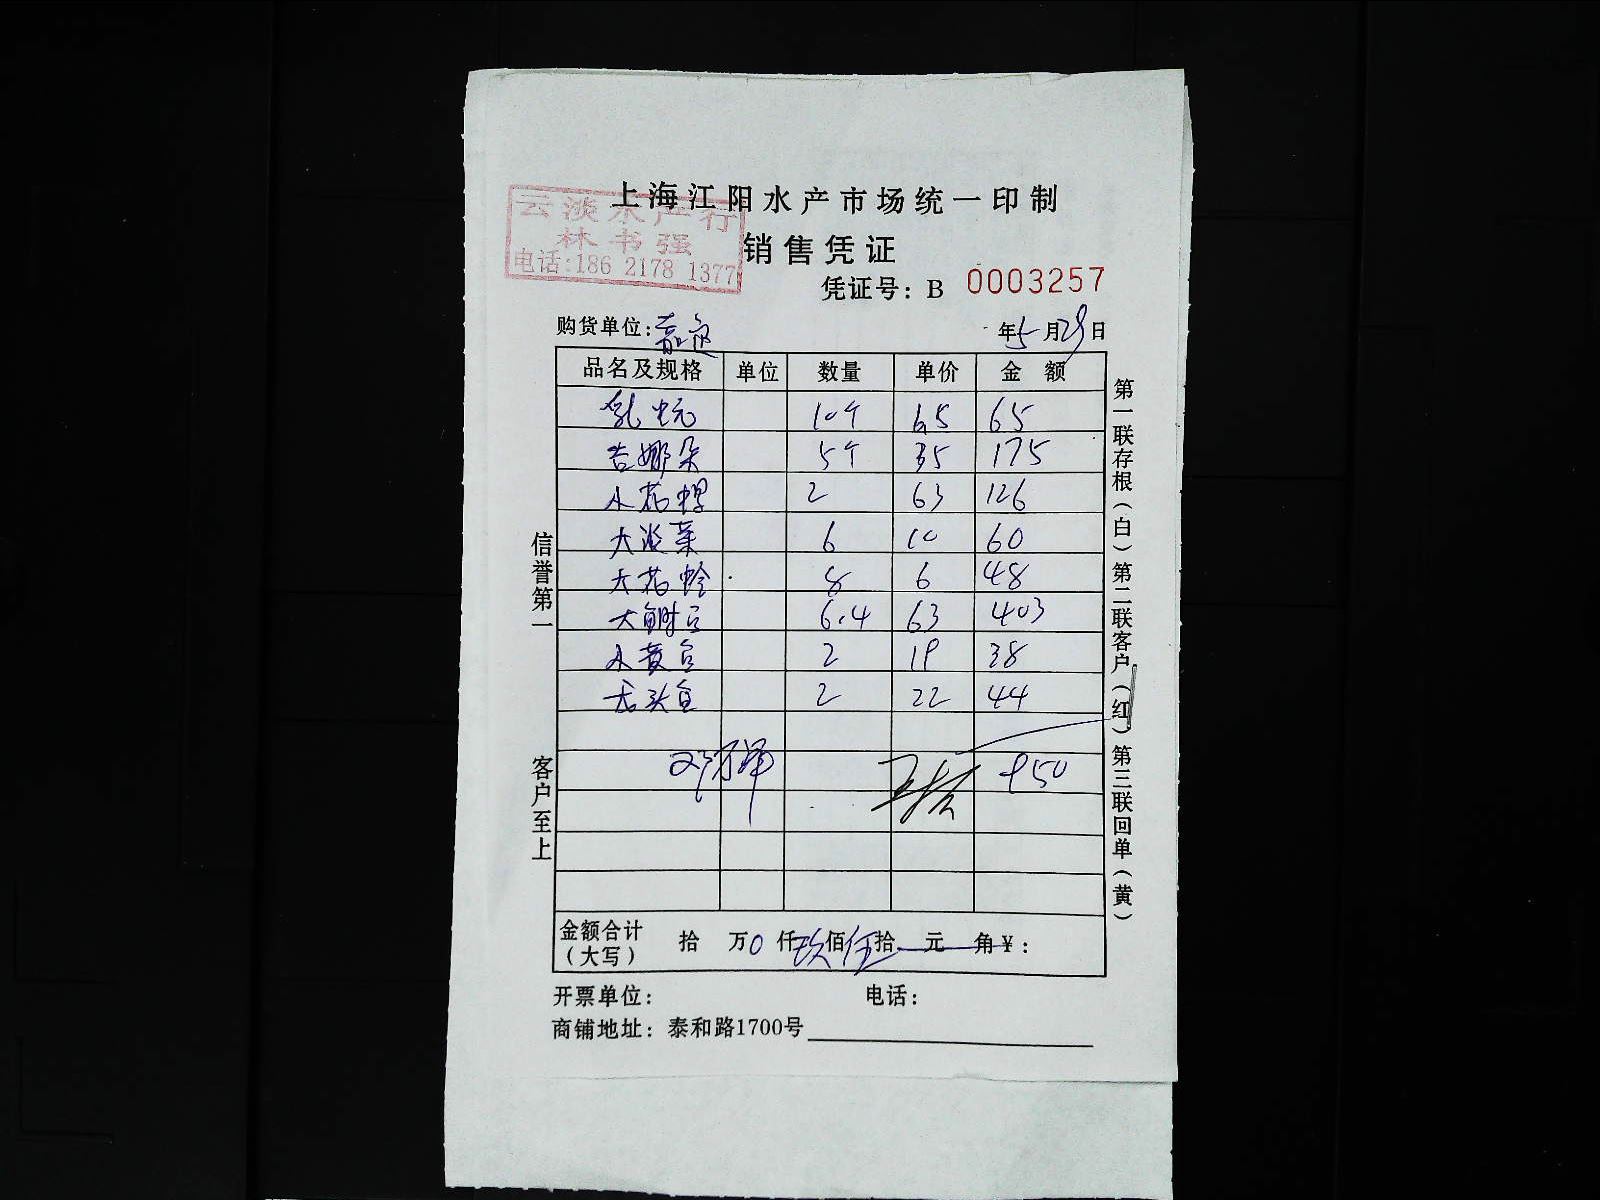 上海江阳水产市场统一印制
云淡水产行
林书强
电话:186 2178 1377
销售凭证
凭证号: B 0003257
购货单位:
年5月29日
品名及规格 单位 数量 单价 金额
乳 10个 6.5 65
吉娜朵 5个 35 175
小花螺 2 63 126
大淡菜 6 10 60
大花蛤 8 6 48
大鲥鱼 6.4 63 403
小黄鱼 2 19 38
舌头鱼 2 22 44
950
金额合计(大写) 拾 万0仟玖佰伍拾 元 角¥:
开票单位: 电话:
商铺地址: 泰和路1700号
信誉第一 客户至上
第一联存根(白)第二联客户(红)第三联回单(黄)